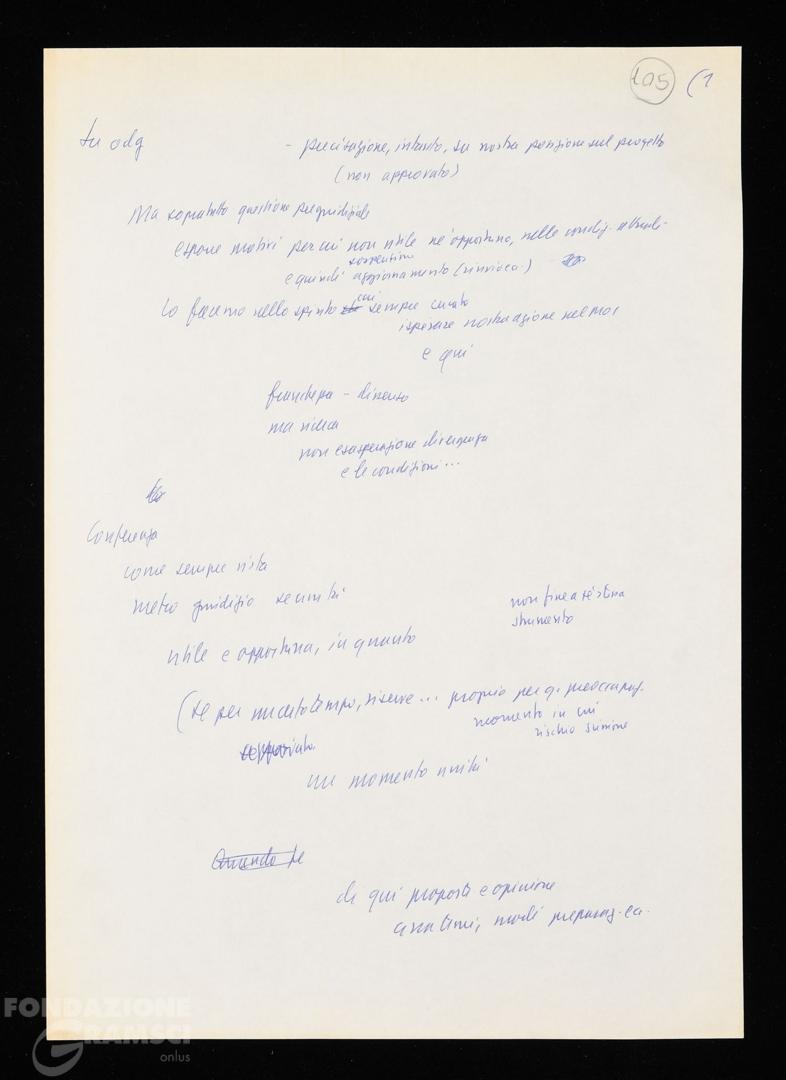 105 (1
su odg - precisazione, intanto, su nostra posizione sul progetto
(non approvato)
Ma sopratutto questione pregiudiziale
esporre motivi per cui non utile nè opportuna, nelle condiz. attuali-
sospensione
e quindi aggiornamento (rinvio ca.)
cui
Lo faremo nello spirito sempre cercato
ispirare nostra azione nel moc
e qui
franchezza - dissenso
ma ricerca
non esasperazione divergenza
e le condizioni...
Conferenza
come sempre vista
metro giudizio se unità
non fine a sè stessa
strumento
utile e opportuna, in quanto
(se per un certo tempo, riserve... proprio per q. preoccupaz.
momento in cui
rischio scissione
un momento unità
Quando se
di qui proposte e opinione
circa temi, modi preparaz. ca.
FONDAZIONE
GRAMSCI
onlus